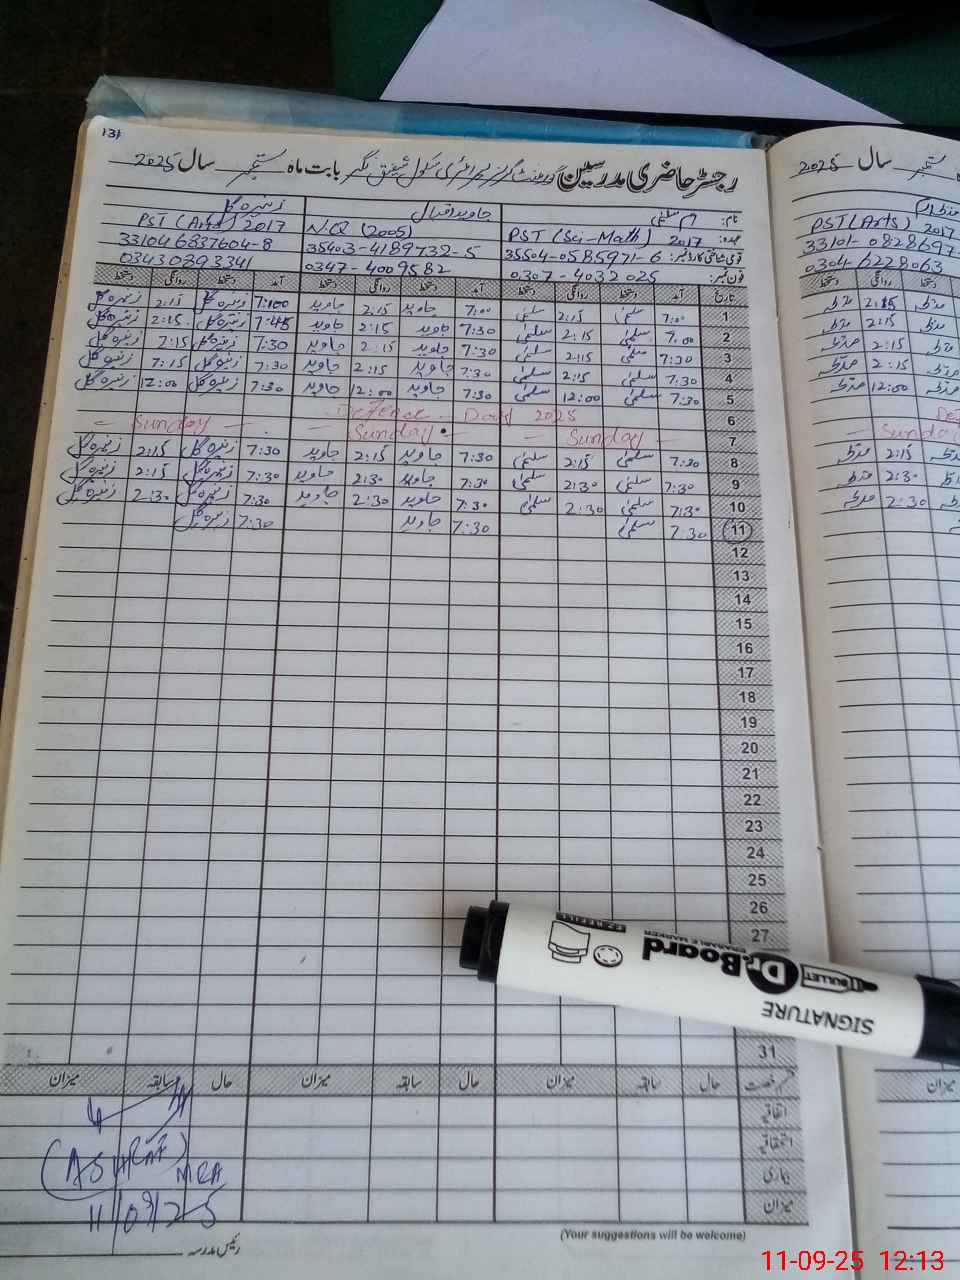 131
رجسٹر حاضری مدرسین گورنمنٹ گرلز پرائمری سکول شفیق نگر بابت ماہ ستمبر سال 2025
نام: سلمیٰ جاوید اقبال زنیرہ گل
عہدہ: PST (Sci-Math) 2017 N/Q (2005) PST (Arts) 2017
قومی شناختی کارڈ نمبر: 35504-0585971-6 35403-4189732-5 331046837604-8
فون نمبر: 0307-4032025 0347-4009582 03430393341
تاریخ آمد دستخط روانگی دستخط آمد دستخط روانگی دستخط آمد دستخط روانگی دستخط
1 7:00 سلمیٰ 2:15 سلمیٰ 7:00 جاوید 2:15 جاوید 7:00 زنیرہ گل 2:15 زنیرہ گل
2 7:00 سلمیٰ 2:15 سلمیٰ 7:30 جاوید 2:15 جاوید 7:45 زنیرہ گل 2:15 زنیرہ گل
3 7:30 سلمیٰ 2:15 سلمیٰ 7:30 جاوید 2:15 جاوید 7:30 زنیرہ گل 7:15 زنیرہ گل
4 7:30 سلمیٰ 2:15 سلمیٰ 7:30 جاوید 2:15 جاوید 7:30 زنیرہ گل 7:15 زنیرہ گل
5 7:30 سلمیٰ 12:00 سلمیٰ 7:30 جاوید 12:00 جاوید 7:30 زنیرہ گل 12:00 زنیرہ گل
6 Defence Day 2025
7 Sunday Sunday Sunday
8 7:30 سلمیٰ 2:15 سلمیٰ 7:30 جاوید 2:15 جاوید 7:30 زنیرہ گل 2:15 زنیرہ گل
9 7:30 سلمیٰ 2:30 سلمیٰ 7:30 جاوید 2:30 جاوید 7:30 زنیرہ گل 2:15 زنیرہ گل
10 7:30 سلمیٰ 2:30 سلمیٰ 7:30 جاوید 2:30 جاوید 7:30 زنیرہ گل 2:30 زنیرہ گل
11 7:30 سلمیٰ 7:30 جاوید 7:30 زنیرہ گل
12
13
14
15
16
17
18
19
20
21
22
23
24
25
26
27
31
قسم رخصت حال سابقہ میزان حال سابقہ میزان حال سابقہ میزان
اتفاقیہ
استحقاقیہ
بیماری
میزان
(ASHRAF) MEA
11/09/25
رئیس مدرسہ
(Your suggestions will be welcome)
سال 2025
ستمبر
PST (Arts) 2017
33101-0828697-
0304 6228063
روانگی دستخط
2:15
2:15
2:15
2:15
12:00
Sunday
2:15
2:30
2:30
میزان
EZ REFILL
Dr.Board
ERASABLE MARKER
BULLET
SIGNATURE
11-09-25 12:13